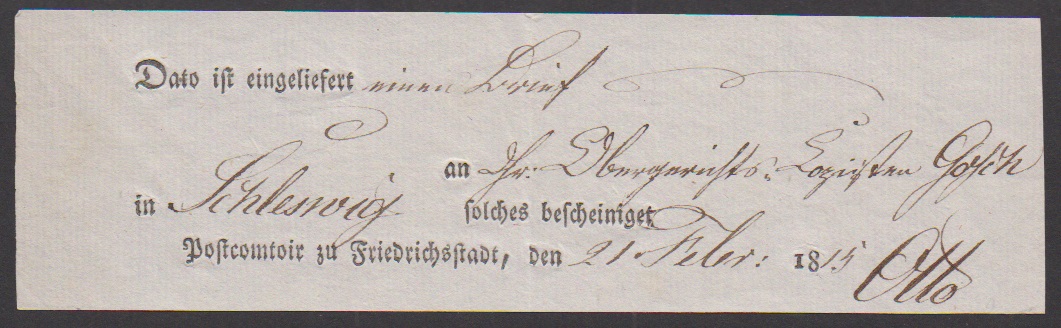 Dato ist eingeliefert einen Brief
an Hr: Obergerichts-Copiisten Gosch
in Schleswig solches bescheiniget
Postcomtoir zu Friedrichsstadt, den 21 Febr: 1815 Otto